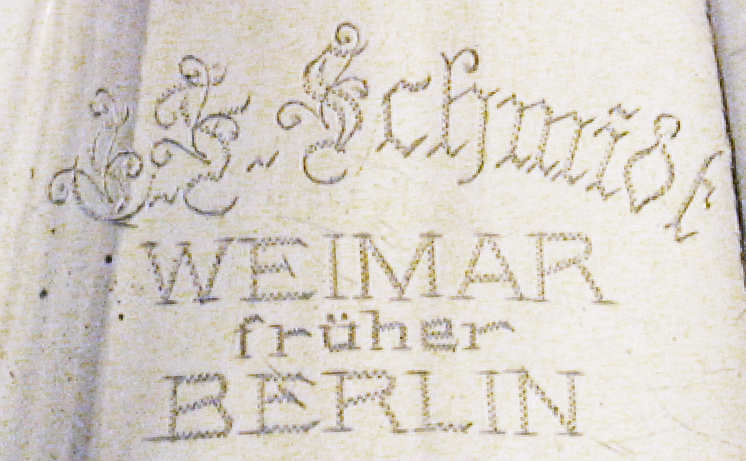 C. F. Schmidt
WEIMAR
früher
BERLIN